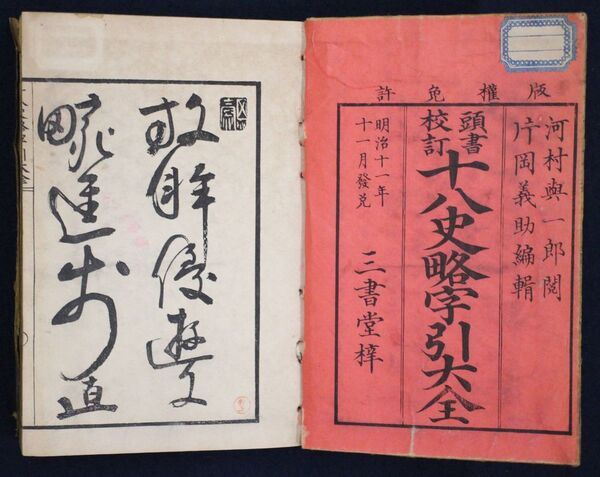 版權免許
河村與一郎閲
片岡義助編輯
頭書
校訂
十八史略字引大全
明治十一年
十一月發兌
三書堂梓
放眸優遊文
進步直